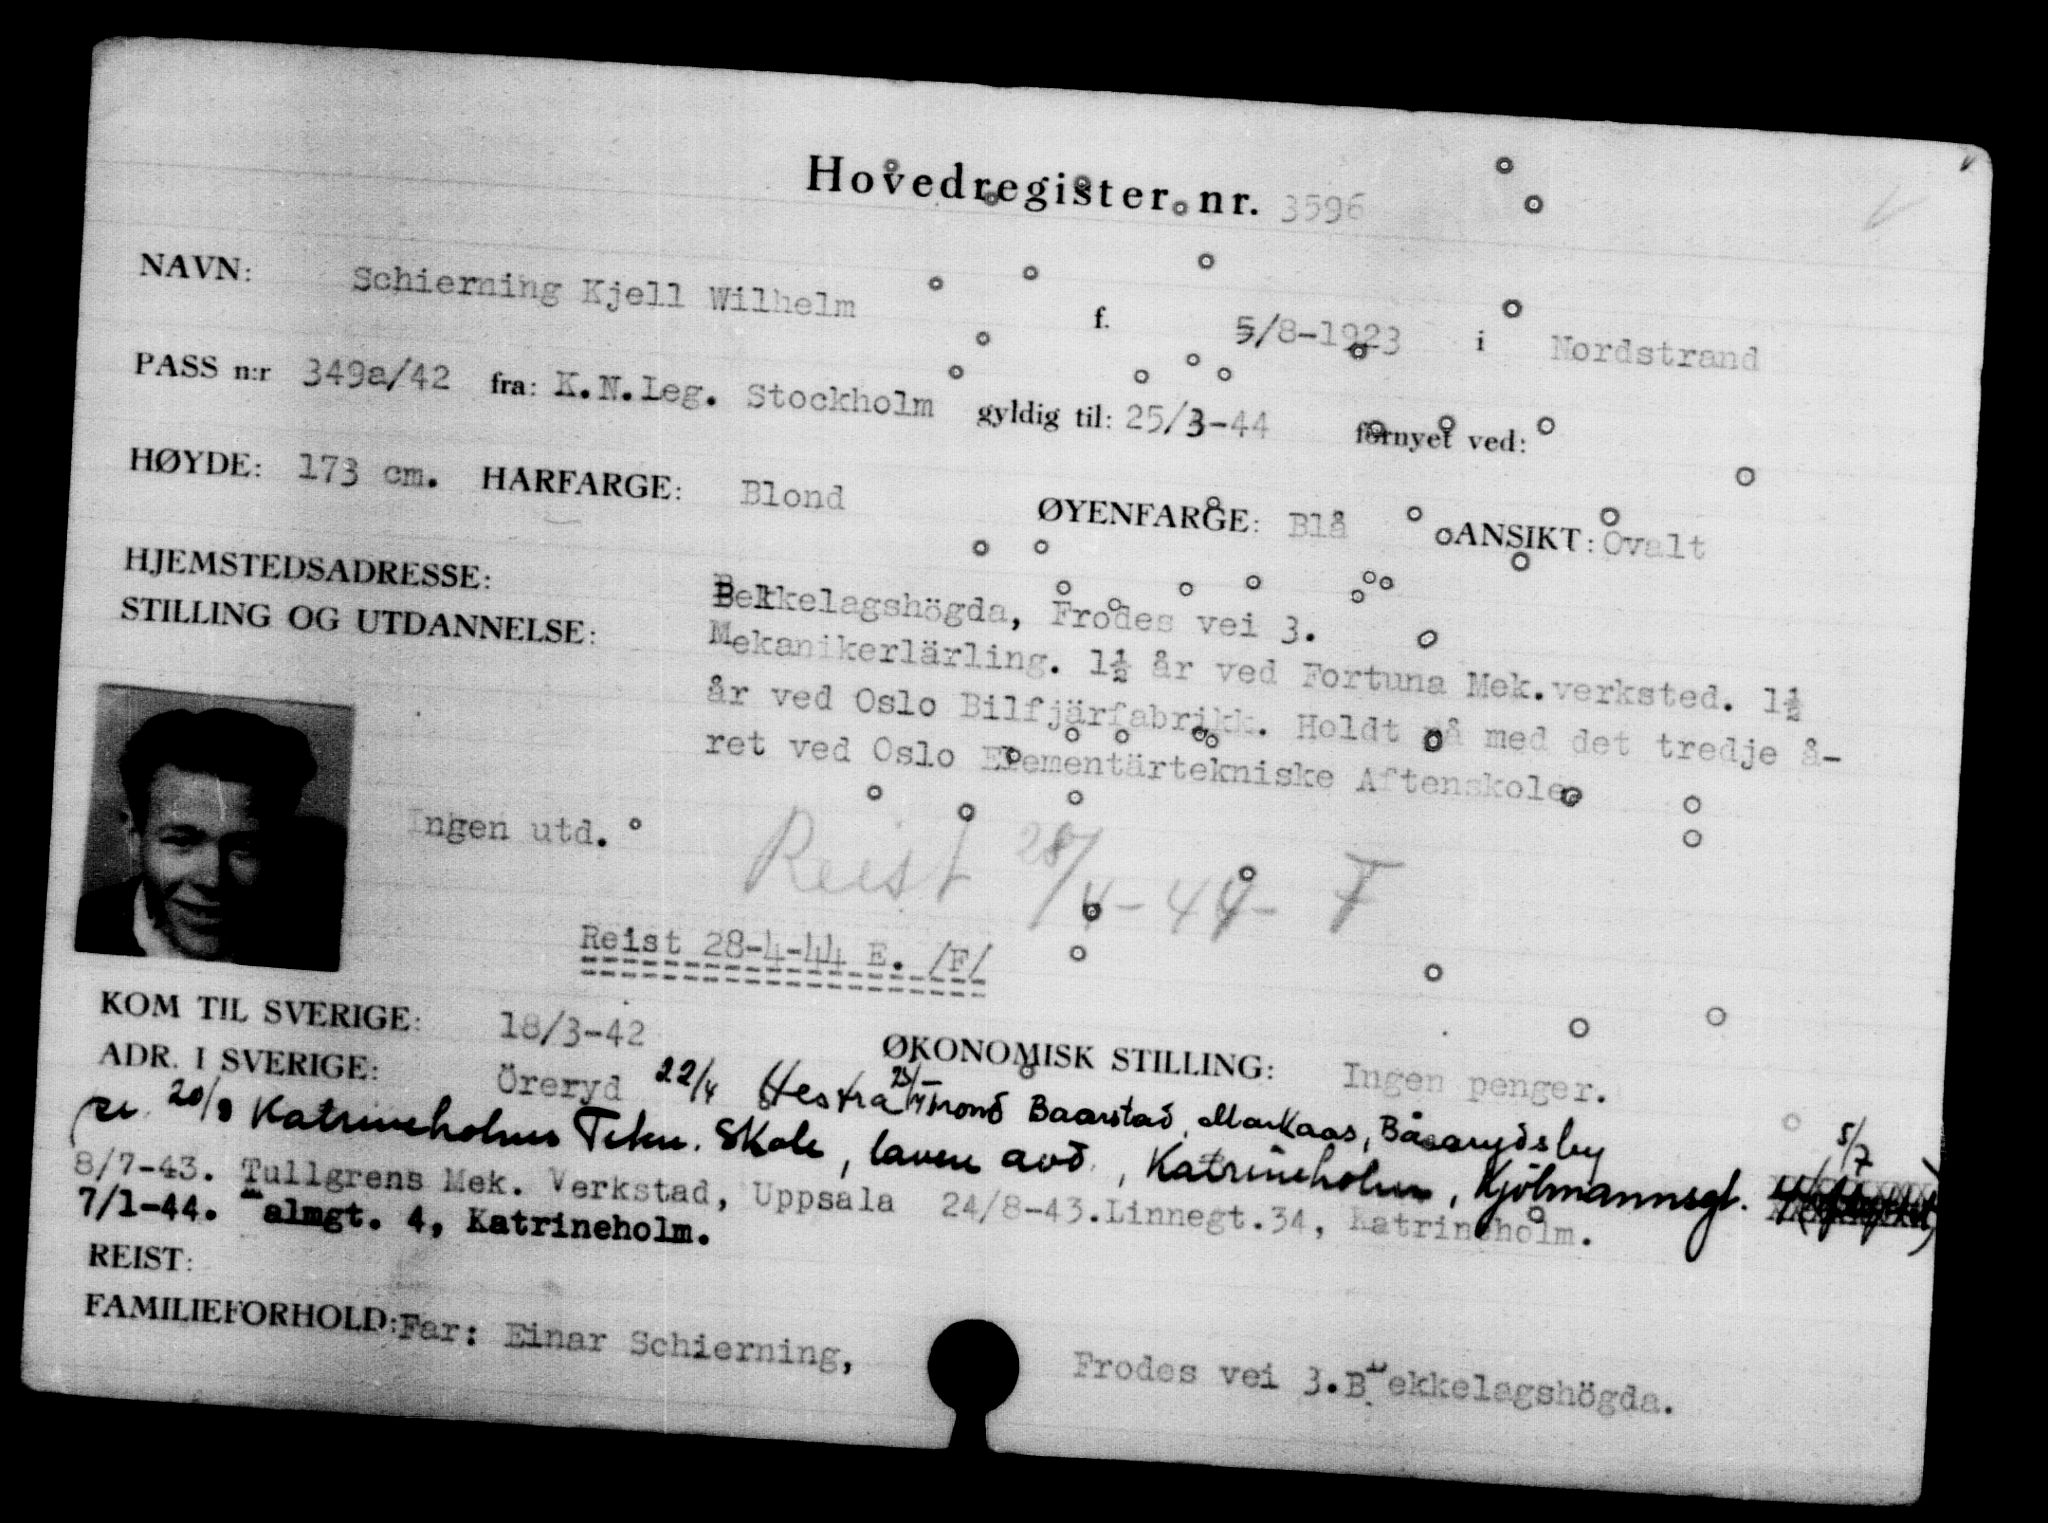 Hovedregister nr. 3596
NAVN: Schierning Kjell Wilhelm f. 5/8-1923 i Nordstrand
PASS n:r 349a/42 fra: K.N.Leg. Stockholm gyldig til: 25/3-44 fornyet ved:
HØYDE: 173 cm. HARFARGE: Blond ØYENFARGE: Blå ANSIKT: Ovalt
HJEMSTEDSADRESSE: Bekkelagshögda, Frodes vei 3.
STILLING OG UTDANNELSE: Mekanikerlärling. 1½ år ved Fortuna Mek.verksted. 1½
år ved Oslo Bilfjärfabrikk. Holdt på med det tredje å-
ret ved Oslo Elementärtekniske Aftenskole.
Ingen utd.
Reist 28/4-44- F
Reist 28-4-44 E. /F/
KOM TIL SVERIGE: 18/3-42 ØKONOMISK STILLING: Ingen penger.
ADR. I SVERIGE: Öreryd 22/4 Hestra Trond Baarstad, Markaas, Båsarydsby
20/8 Katrineholms Tekn. Skole, lavere avd., Katrineholm, Kjölmannsgt. 5/7
8/7-43. Tullgrens Mek. Verkstad, Uppsala 24/8-43.Linnegt.34, Katrineholm.
7/1-44. Malmgt. 4, Katrineholm.
REIST:
FAMILIEFORHOLD: Far: Einar Schierning, Frodes vei 3.Bekkelagshögda.